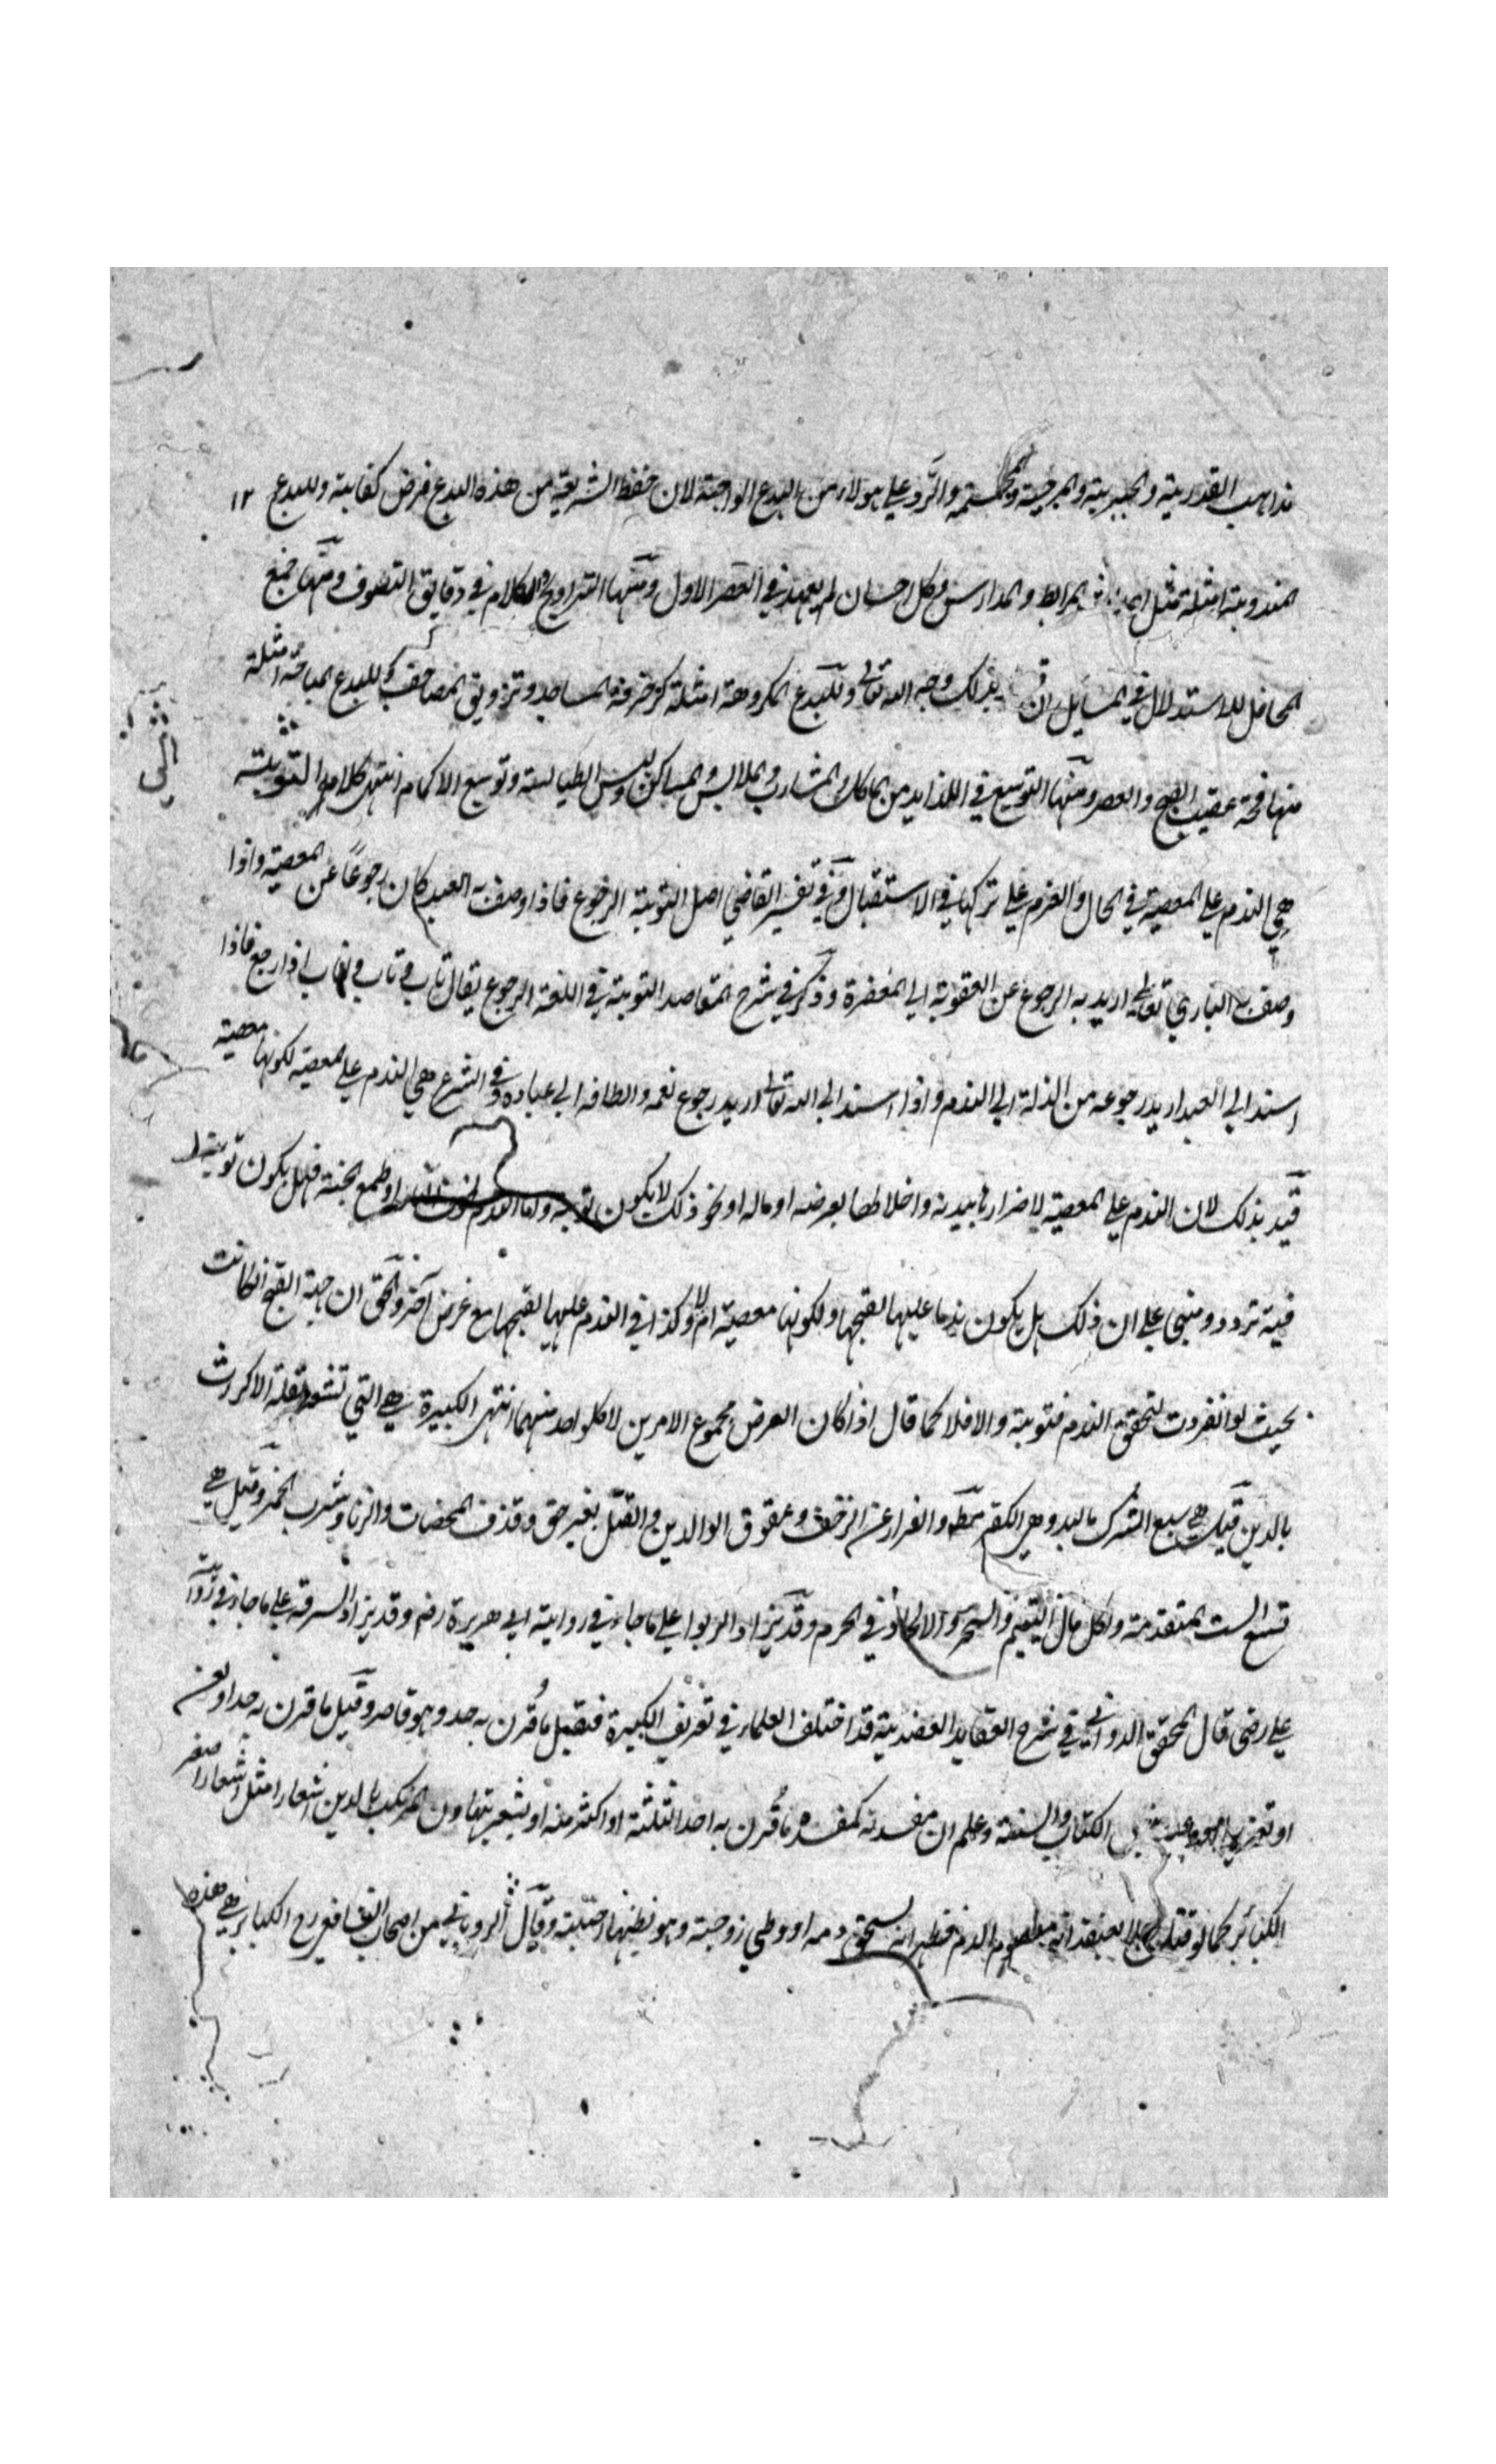 مذاهب القدرية والجبرية والمرجية والمجسمة والرد علي هولاء من البدع الواجبة لان حفظ الشريعة من هذه البدع فرض كفاية وللبدع ١٢
المندوبة امثلة مثل احداث المرابط والمدارس وكل احسان لم يعهد في العصر الاول ومنها التراويح والكلام في دقايق التصوف ومنها جمع
المحافل للاستدلال في المسايل ان بذلك وجه الله تعالى وللبدع المكروهة امثلة كزخرفة المساجد وتزويق المصاحف وللبدع المباحة امثلة
منها فحة عقيب الصبح والعصر ومنها التوسع في اللذايذ من المأكل والمشارب والملابس والمساكن ولبس الطيالسة وتوسيع الاكمام انتهى كلامه التوبة
هي الندم علي المعصية في الحال والعزم علي تركها في الاستقبال وفي تفسير القاضي اصل التوبة الرجوع فاذا وصف به العبد كان رجوعًا عن المعصية واذا
وصف به الباري تعالى اريد به الرجوع عن العقوبة الي المغفرة وذكر في شرح المقاصد التوبة في اللغة الرجوع يقال تاب وثاب واناب اذا رجع فاذا
اسند الي العبد اريد رجوعه من الذلة الي الندم واذا اسند الي الله تعالى اريد رجوع نعمه والطافه الي عباده وفي الشرع هي الندم علي المعصية لكونها معصية
قيد بذلك لان الندم علي المعصية لاضرارها ببدنه واخلالها بعرضه او ماله او نحو ذلك لا يكون توبة واما الندم لخوف النار او طمع الجنة فهل يكون توبة
فيه تردد ومبني علي ان ذلك هل يكون ندما عليها لقبحها ولكونها معصية ام لا وكذا في الندم عليها لقبحها مع غرض آخر والحق ان جهة القبح ان كانت
بحيث لو انفردت لتحقق الندم فتوبة والا فلا كما قال اذا كان الغرض مجموع الامرين لا كلواحد منهما انتهى الكبيرة هي التي تشعر بقلة الاكتراث
بالدين قيل هي سبع الشرك بالله وهي الكفر والفرار عن الزحف وعقوق الوالدين والقتل بغير حق وقذف المحصنات والزنا وشرب الخمر وقيل هي
تسع الست المتقدمة واكل مال اليتيم والسحر والالحاد في الحرم وقد يزاد الربوا علي ما جاء في رواية ابي هريرة رضـ وقد يزاد السرقة علي ما جاء في رواية
علي رضى قال المحقق الدواني في شرح العقايد العضدية قد اختلف العلماء في تعريف الكبيرة فقيل ما قرن به حد وهو قاصر وقيل ما قرن به حد او لعن
او بنص الكتاب والسنة وعلم ان مفسدته كمفسدة ما قرن به احد الثلثة او اكثر منه او يشعر بتهاون المرتكب بالدين اشعارا مثل اشعار اصغر
الكبائر كما لو قتل رجلا يعتقد انه معصوم الدم فظهر انه يستحق دمه او وطي زوجته وهو يظنها اجنبية وقال الروياني من اصحاب الشافعي رح الكبائر هي هذه